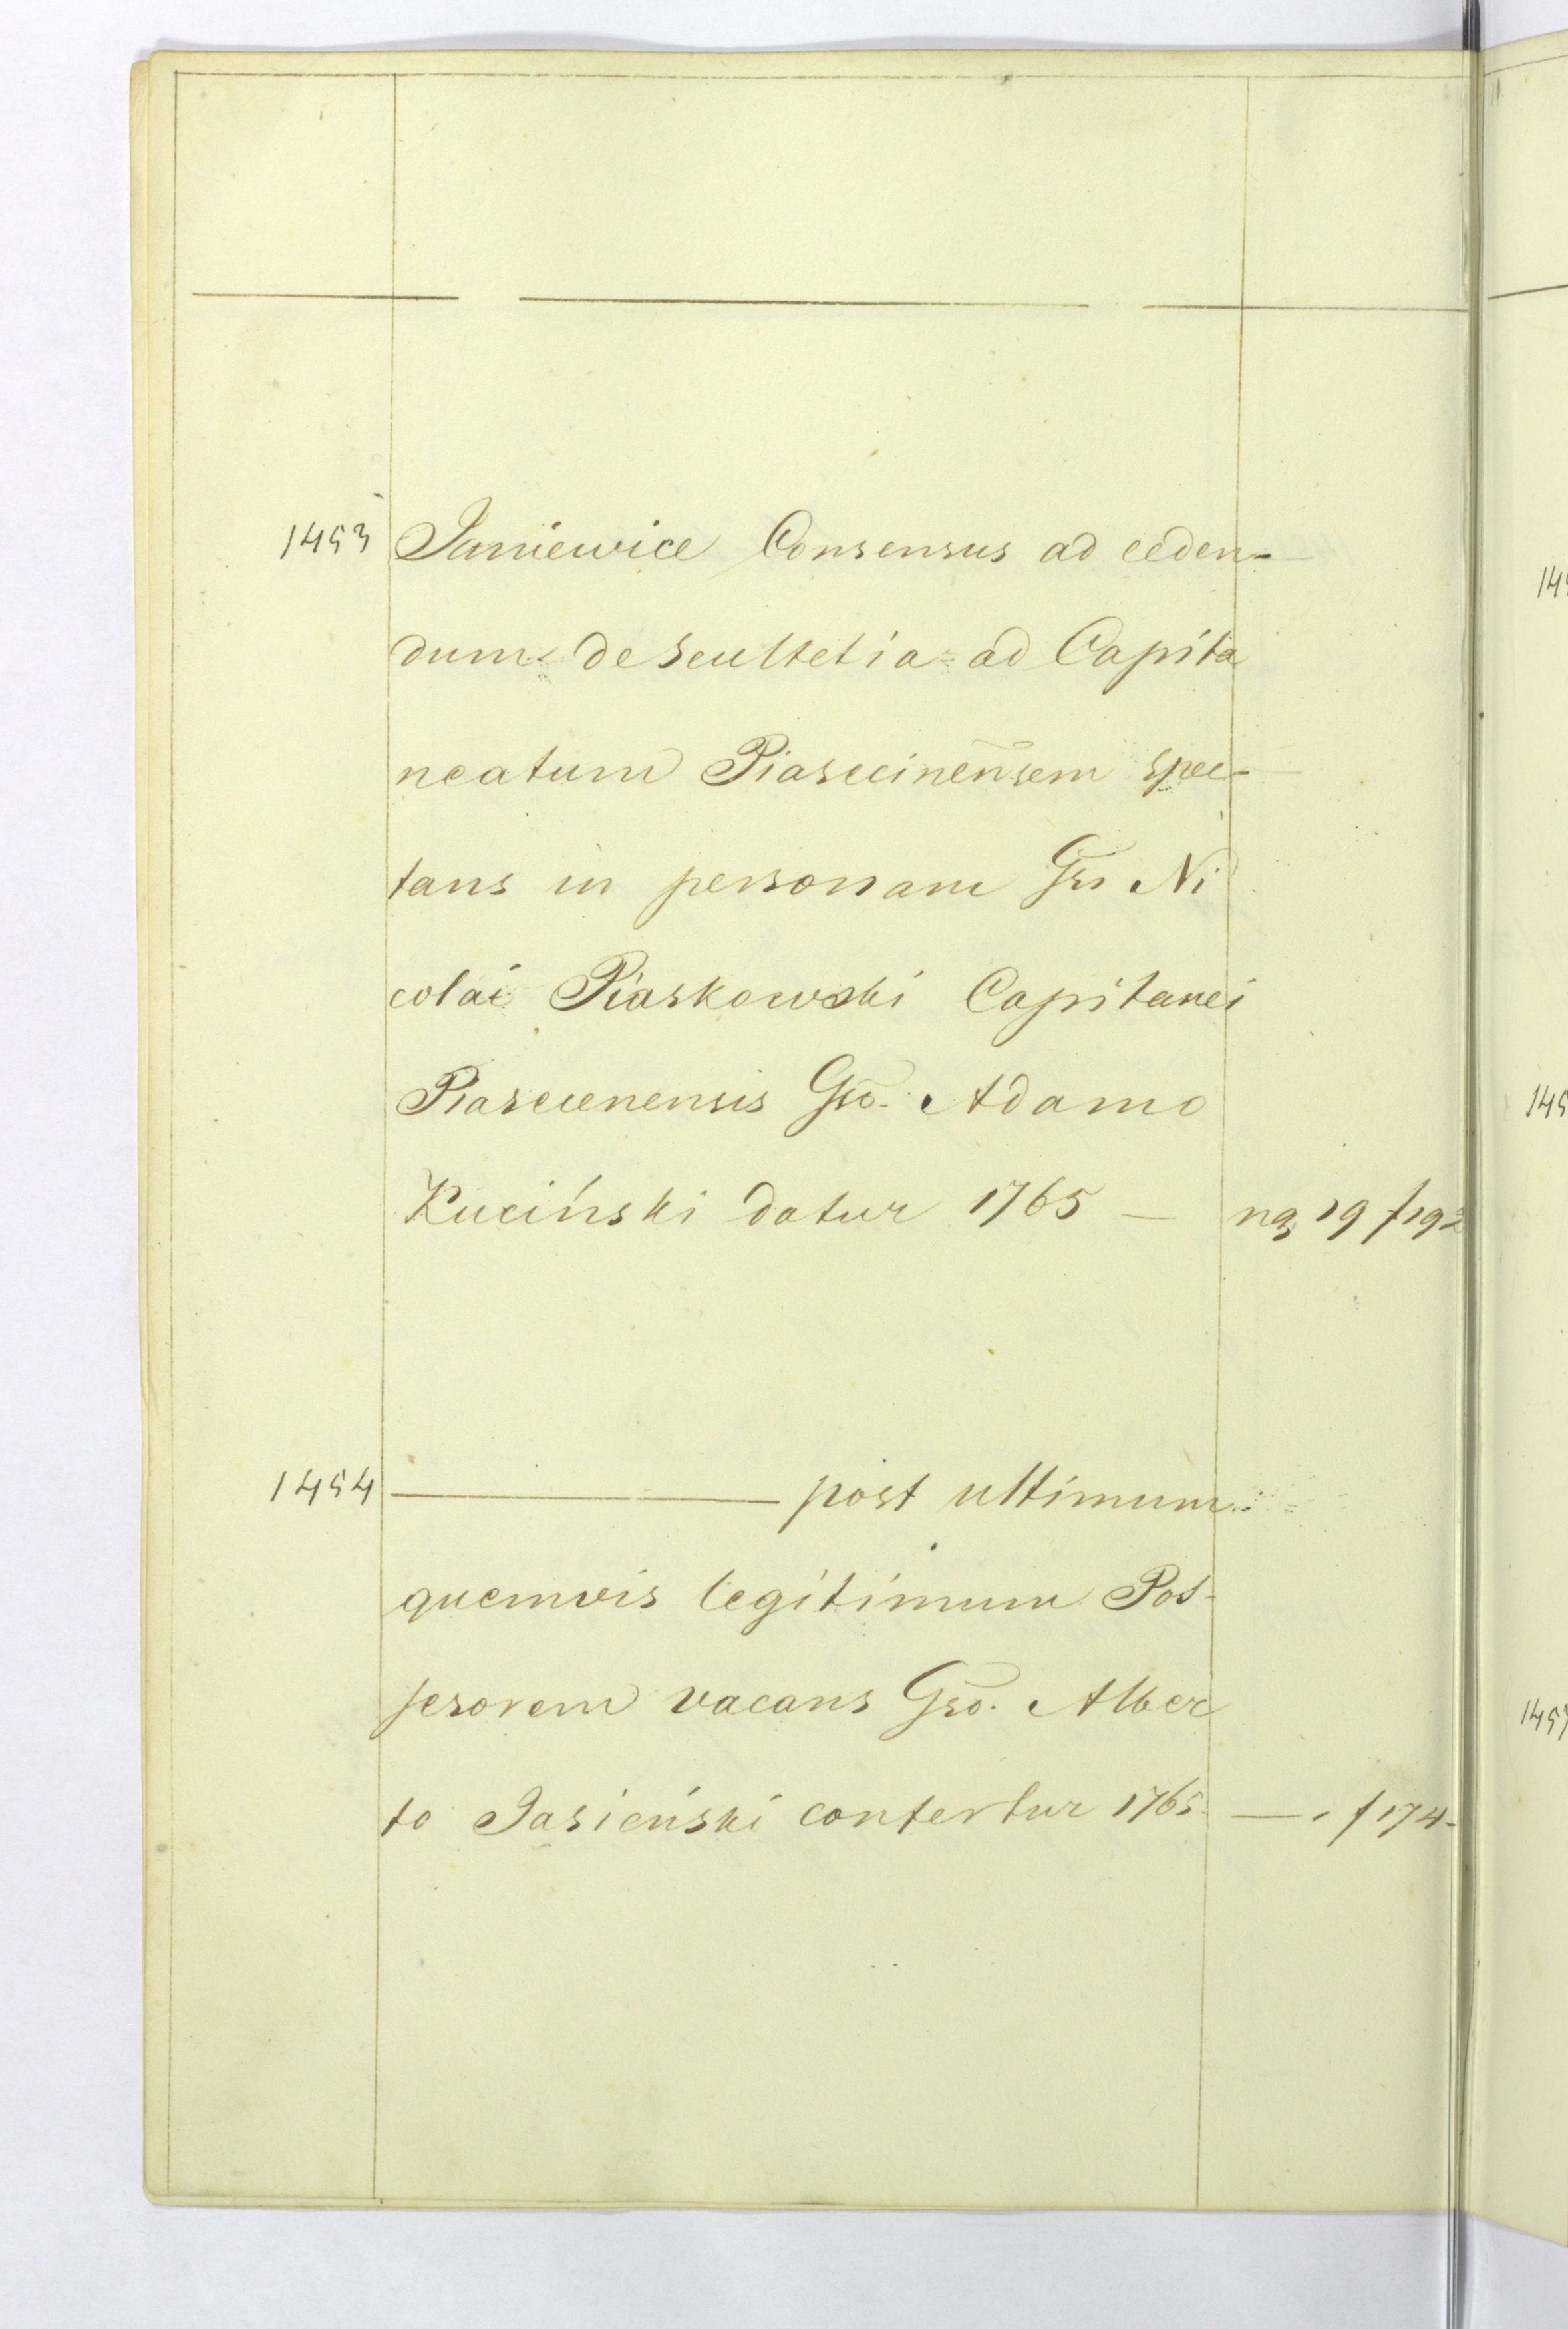 1453 Juniewice Consensus ad ceden-
dum de Scultetia ad Capita
neatum Piasecinen̄sem spec-
tans in personam Gsi Ni
colai Piaskowski Capitanei
Piasecenensis Gso. Adamo
Kuciński datur 1765 — na 19 f 192
1454 ——— post ultimum
quemvis legitimum Pos-
sesorem vacans Gso. Alber
to Jasieński confertur 1765 — f 174